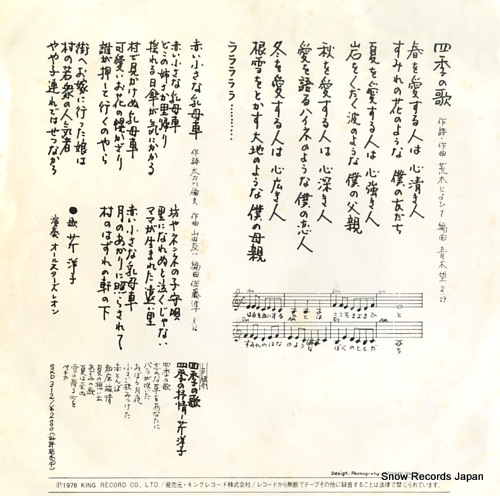 四季の歌
作詞・作曲 荒木とよひさ 編曲 青木望 2:59
春を愛する人は 心清き人
すみれの花のような 僕の友だち
夏を愛する人は 心強き人
岩をくだく波のような 僕の父親
秋を愛する人は 心深き人
愛を語るハイネのような 僕の恋人
冬を愛する人は 心広き人
根雪をとかす大地のような 僕の母親
ラララララ………
はるをあいする ひとは こころきよきひ と
すみれのはな のような ぼくのともだ ち
赤い小さな乳母車
作曲 山田 編曲 佐藤
赤い小さな乳母車
どこの姉さが里帰り
揺れる日傘が気にかかる
村で見かけぬ乳母車
可愛いお花の幌かざり
誰が押して行くのやら
街へお嫁に行った娘は
村の若衆の人気者
やや子連れではせつなかろ
坊やネンネの子守唄
里になれぬと泣くじゃない
ママが生まれた遠い里
赤い小さな乳母車
月のあかりに照らされて
村のはずれの軒の下
●歌 芹洋子
演奏 オールスターズ・レオン
四季の歌
四季の抒情 芹洋子
四季の歌
バラが咲いた
おぼろ月夜
小さい秋みつけた
赤とんぼ
知床旅情
夏の思い出
雪の降る町を
ペチカ
Ⓟ1976 KING RECORD CO., LTD./発売元・キングレコード株式会社/レコードから無断でテープその他に録音することは法律で禁じられています。
Snow Records Japan